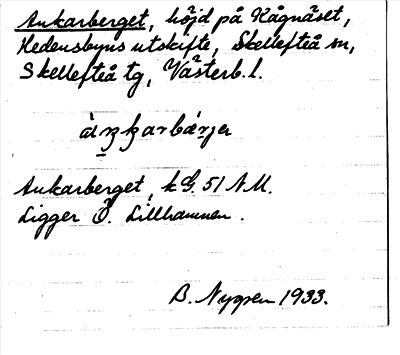 Ankarberget, höjd på Kågnäset,
Hedensbyns utskifte, Skellefteå sn,
Skellefteå tg, Västerb. l.
Ankarberget, kG. 51 N.M.
Ligger Ö. Lillhamnen.
B. Nygren 1933.